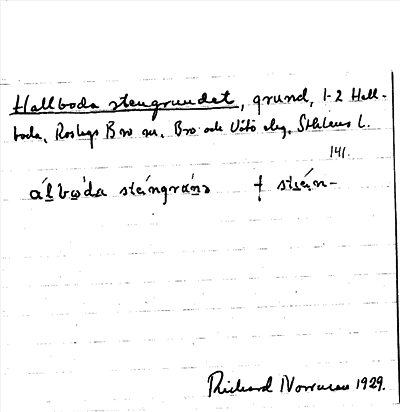 Hallboda stengrundet, grund, 1-2 Hall-
boda, Roslags Bro sn, Bro och Vätö slg, Sthlms L.
141.
ál bωda stæ̀ngrans † stæ̀n-
Richard Norrman 1929.